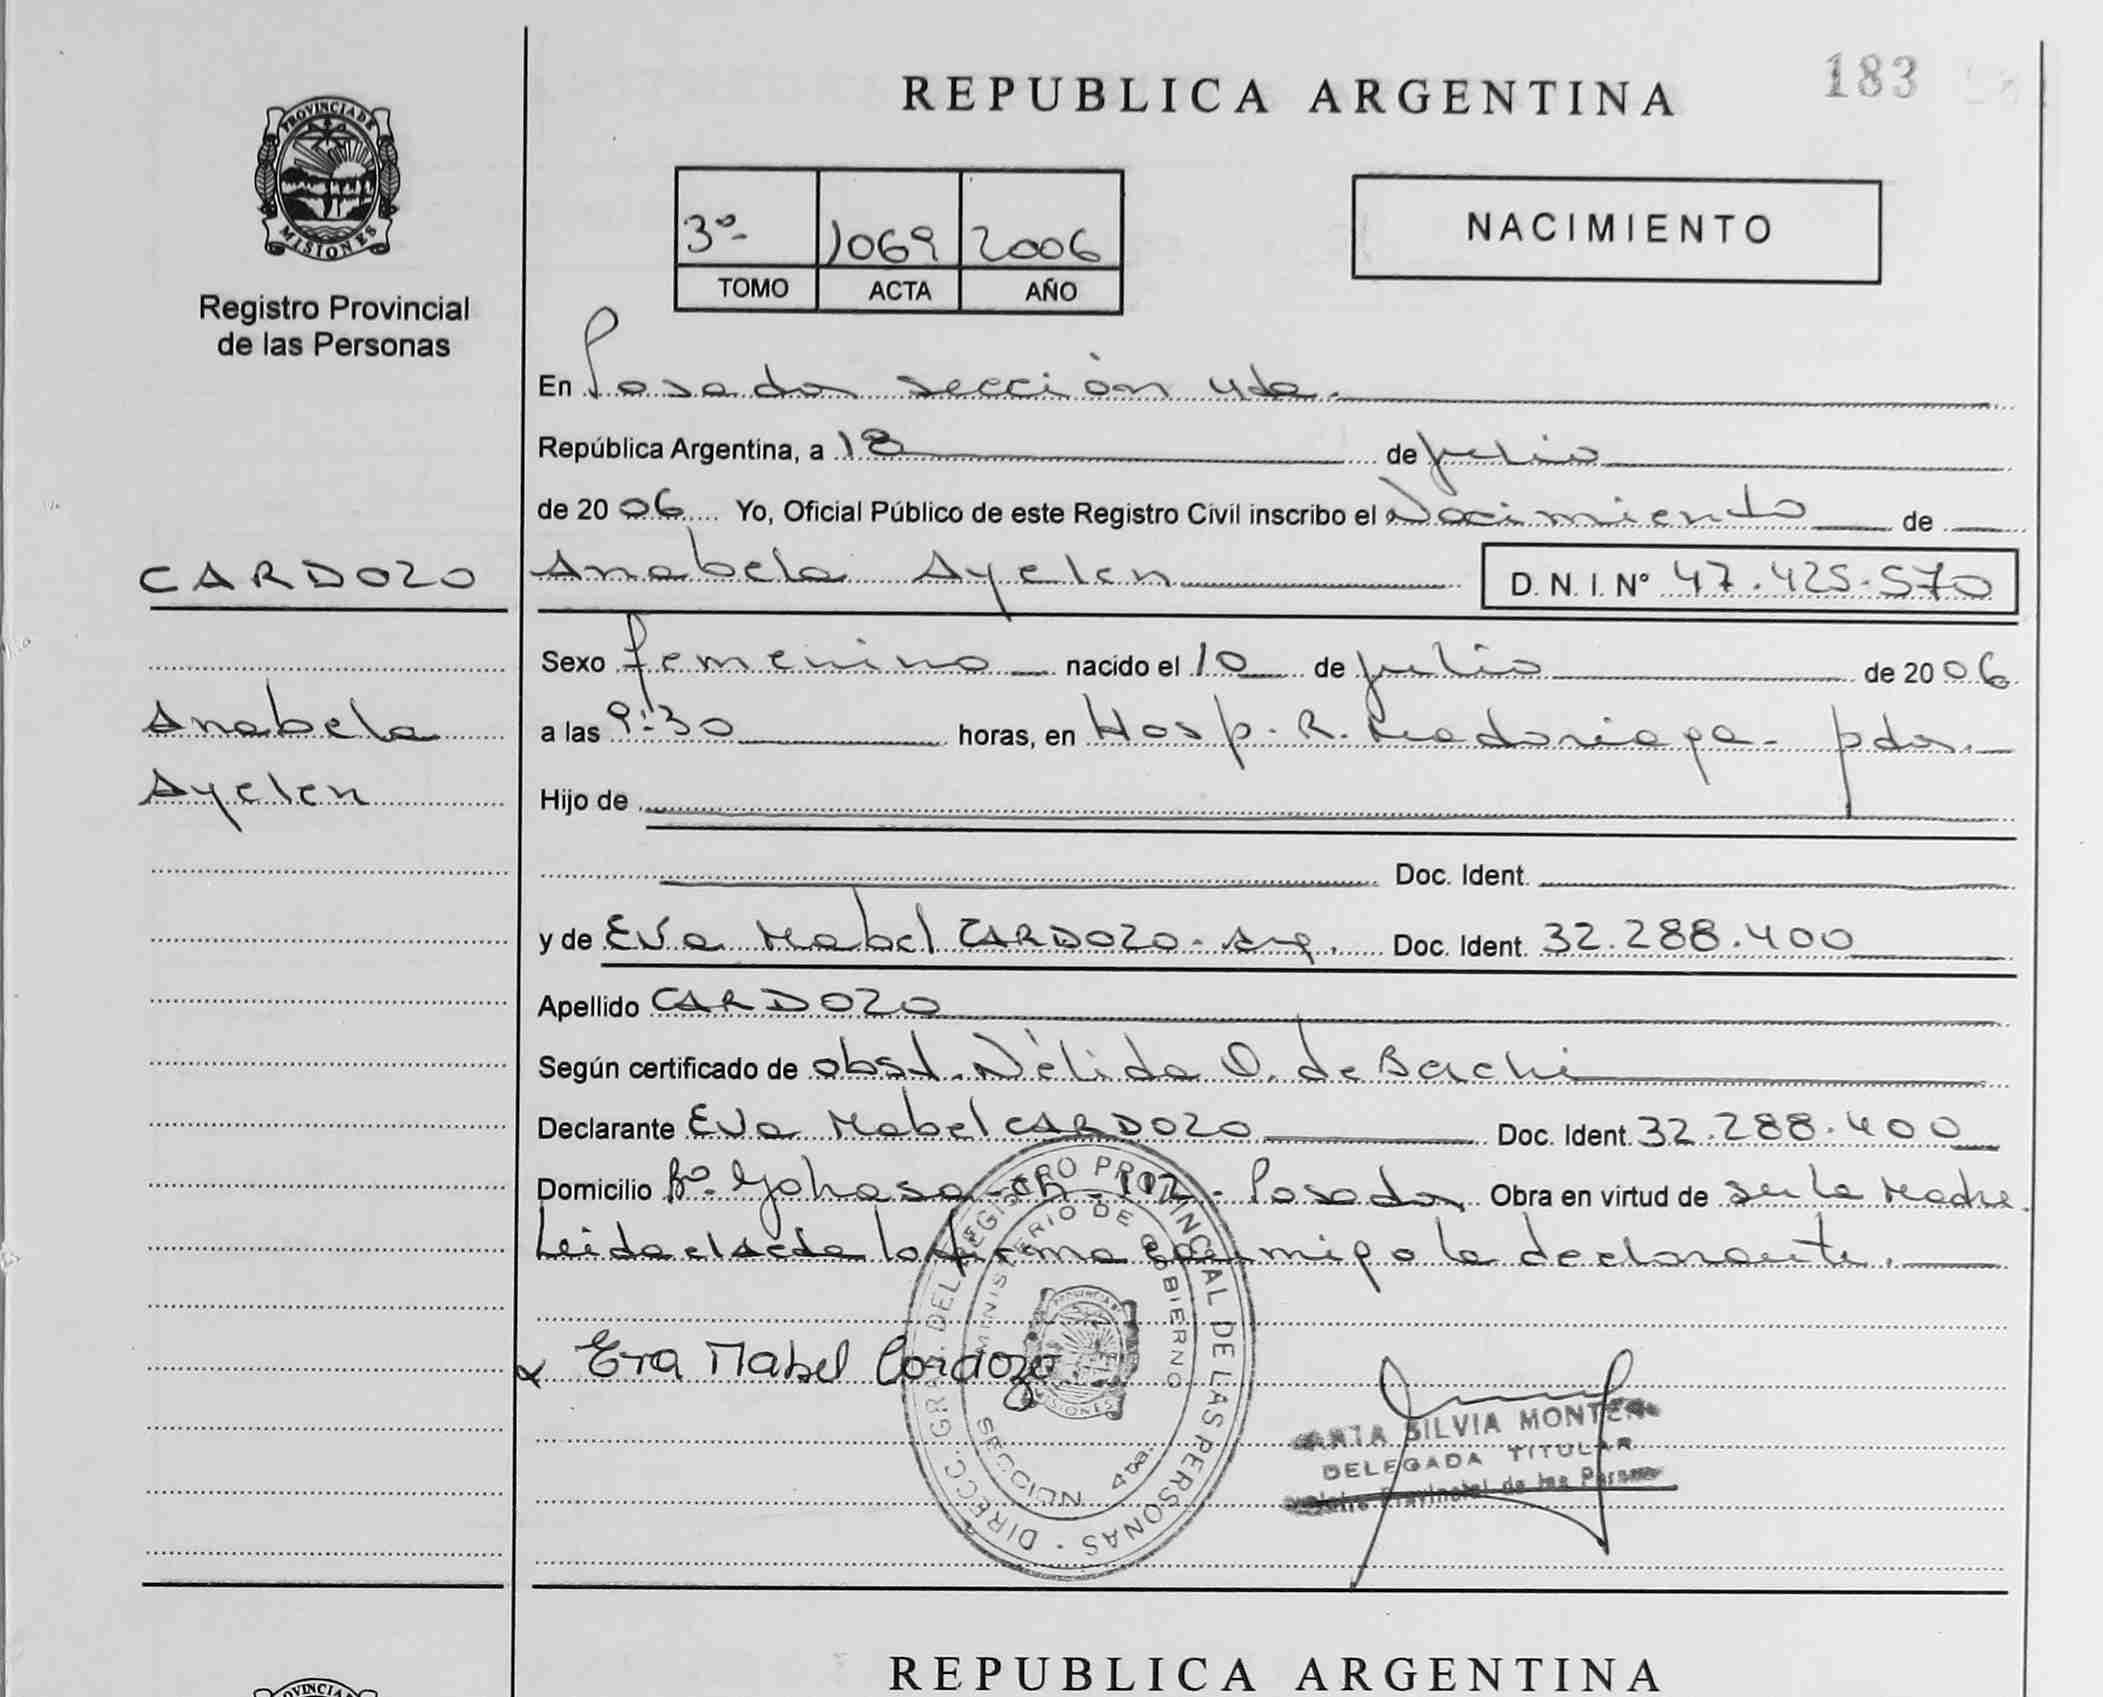 REPUBLICA ARGENTINA
183
PROVINCIA DE
MISIONES
Registro Provincial
de las Personas
3º- 1069 2006
TOMO ACTA AÑO
NACIMIENTO
En Posadas sección 4ta.
República Argentina, a 18 de julio
de 2006 Yo, Oficial Público de este Registro Civil inscribo el Nacimiento de
CARDOZO Anabela Ayelen D. N. I. Nº 47.425.570
Sexo femenino nacido el 10 de julio de 2006
Anabela a las 9:30 horas, en Hosp. R. Madariaga - pdas.
Ayelen Hijo de
Doc. Ident.
y de Eva Mabel CARDOZO - arg. Doc. Ident. 32.288.400
Apellido CARDOZO
Según certificado de obst. Nélida O. de Bachi
Declarante Eva Mabel CARDOZO Doc. Ident. 32.288.400
Domicilio Bº. Yohasa - ch - 112 - Posadas Obra en virtud de ser la Madre.
Leida el acta la firma conmigo la declarante.
x Eva Mabel Cardozo
DIRECC. GRAL. DEL REGISTRO PROVINCIAL DE LAS PERSONAS
MINISTERIO DE GOBIERNO
SECCION 4ta.
SILVIA
DELEGADA TITULAR
Provincial de las
REPUBLICA ARGENTINA